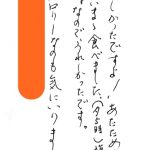 しかったですよ！あたため
いまま食べました。(夕5時)
なのでうれしかったです。
ロリーなのも気にいります